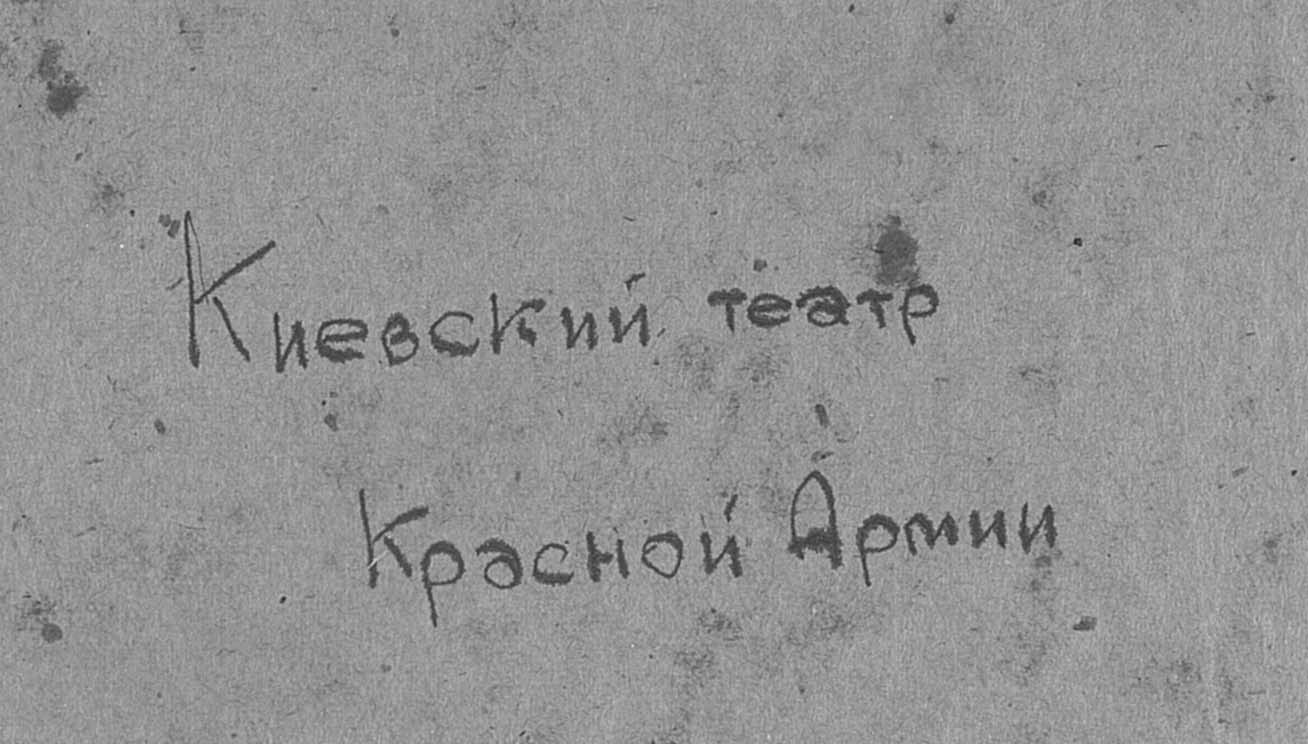 Киевский театр
Красной Армии